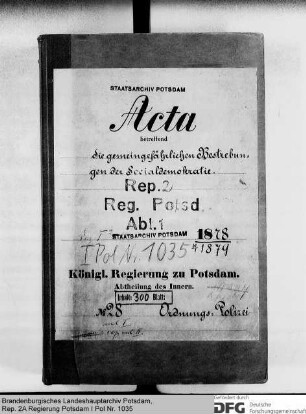 STAATSARCHIV POTSDAM
Acta
betreffend
Die gemeingefährlichen Bestrebun-
gen der Socialdemokratie.
Rep. 2
Reg. Potsd.
Abt. 1
STAATSARCHIV POTSDAM 1878
I Pol Nr. 1035
Königl. Regierung zu Potsdam.
Abtheilung des Innern.
Inhalt: 300 Blatt:
No 28 Ordnungs-Polizei
Brandenburgisches Landeshauptarchiv Potsdam,
Rep. 2A Regierung Potsdam I Pol Nr. 1035
Gefördert durch
DFG Deutsche
Forschungsgemeinschaft